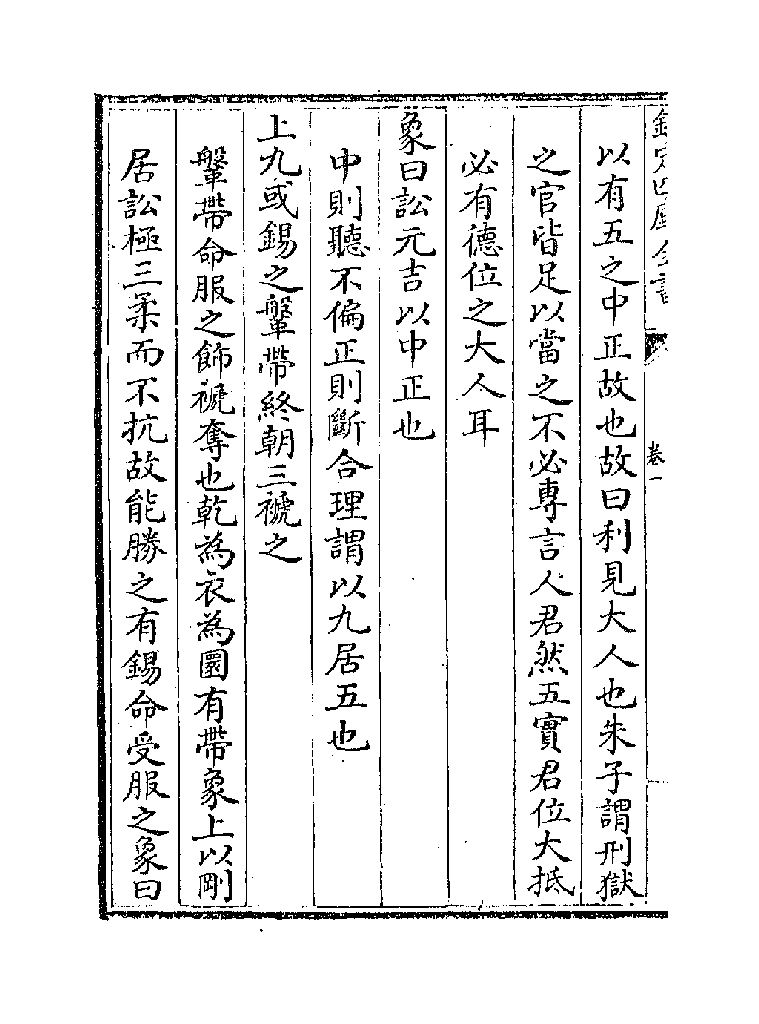 欽定四庫全書
卷一
以有五之中正故也故曰利見大人也朱子謂刑獄
之官皆足以當之不必専言人君然五實君位大抵
必有德位之大人耳
象曰訟元吉以中正也
中則聽不偏正則斷合理謂以九居五也
上九或錫之鞶帶終朝三褫之
鞶帶命服之飾褫奪也乾為衣為圜有帶象上以剛
居訟極三柔而不抗故能勝之有錫命受服之象曰